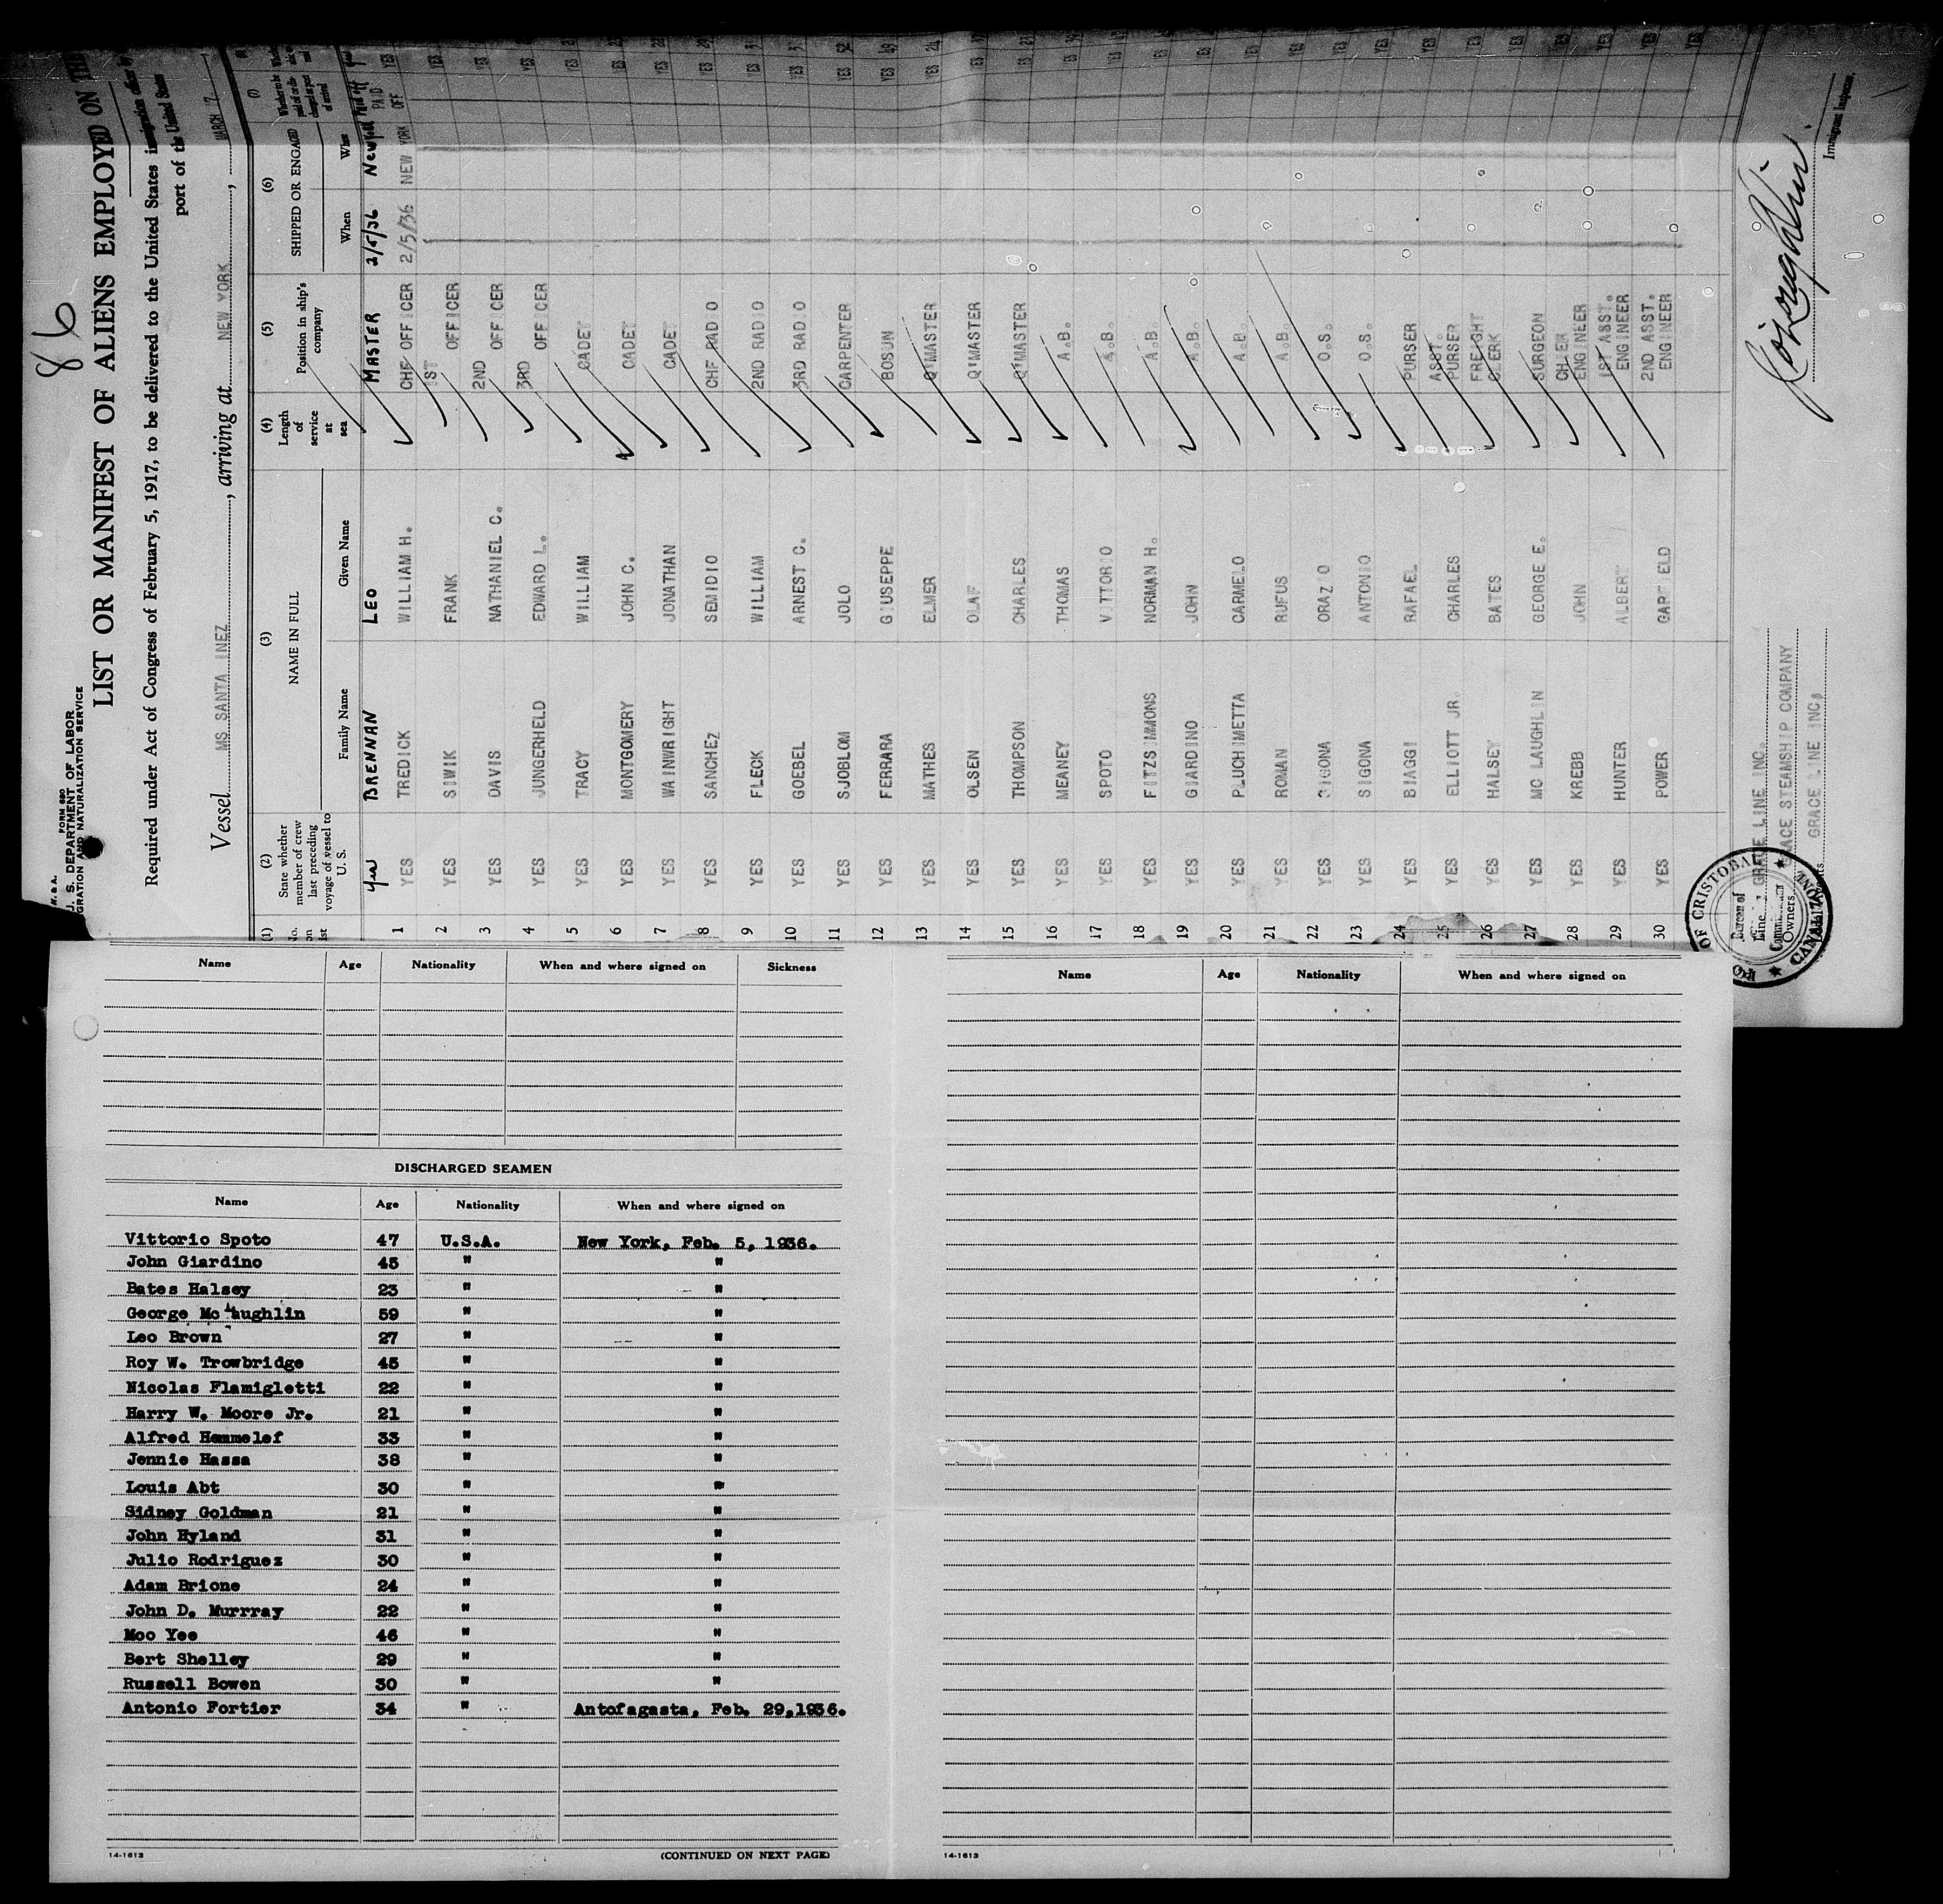 86
W. & A.
FORM 680
U. S. DEPARTMENT OF LABOR
IMMIGRATION AND NATURALIZATION SERVICE
LIST OR MANIFEST OF ALIENS EMPLOYED ON THE
Required under Act of Congress of February 5, 1917, to be delivered to the United States immigration officer by
port of the United States
Vessel MS SANTA INEZ, arriving at NEW YORK, MARCH 7
(1) (2) (3) (4) (5) (6) (7)
No. on list State whether member of crew last preceding voyage of vessel to U. S. NAME IN FULL Length of service at sea Position in ship's company SHIPPED OR ENGAGED
Family Name Given Name When Where
Yes BRENNAN LEO MASTER 2/5/36 New York
1 YES TREDICK WILLIAM H. CHF OFFICER 2/5/36 NEW YORK PAID OFF YES
2 YES SIWIK FRANK 1ST OFFICER YES
3 YES DAVIS NATHANIEL C. 2ND OFFICER YES
4 YES JUNGERHELD EDWARD L. 3RD OFFICER YES
5 YES TRACY WILLIAM CADET YES
6 YES MONTGOMERY JOHN C. CADET YES
7 YES WAINWRIGHT JONATHAN CADET YES
8 YES SANCHEZ SEMIDIO CHF RADIO YES
9 YES FLECK WILLIAM 2ND RADIO YES
10 YES GOEBEL ARNEST C. 3RD RADIO YES
11 YES SJOBLOM JOLO CARPENTER YES 52
12 YES FERRARA GIUSEPPE BOSUN YES 49
13 YES MATHES ELMER Q'MASTER YES 24
14 YES OLSEN OLAF Q'MASTER YES
15 YES THOMPSON CHARLES Q'MASTER YES
16 YES MEANEY THOMAS A.B. YES
17 YES SPOTO VITTORIO A.B. YES
18 YES FITZSIMMONS NORMAN H. A.B. YES
19 YES GIARDINO JOHN A.B. YES
20 YES PLUCHIMETTA CARMELO A.B. YES
21 YES ROMAN RUFUS A.B. YES
22 YES SIGONA ORAZIO O.S. YES
23 YES SIGONA ANTONIO O.S. YES
24 YES BIAGGI RAFAEL PURSER YES
25 YES ELLIOTT JR. CHARLES ASST. PURSER YES
26 YES HALSEY BATES FREIGHT CLERK YES
27 YES MC LAUGHLIN GEORGE E. SURGEON YES
28 YES KREBB JOHN CHIEF ENGINEER YES
29 YES HUNTER ALBERT 1ST ASST. ENGINEER YES
30 YES POWER GARFIELD 2ND ASST. ENGINEER YES
Line GRACE LINE INC.
Owners GRACE STEAMSHIP COMPANY
Agents GRACE LINE INC.
Immigrant Inspector.
PORT OF CRISTOBAL
CANAL ZONE
Name Age Nationality When and where signed on Sickness
DISCHARGED SEAMEN
Name Age Nationality When and where signed on
Vittorio Spoto 47 U.S.A. New York, Feb. 5, 1936.
John Giardino 45 " "
Bates Halsey 23 " "
George Mc Laughlin 59 " "
Leo Brown 27 " "
Roy W. Trowbridge 45 " "
Nicolas Flamigletti 22 " "
Harry W. Moore Jr. 21 " "
Alfred Hemmelef 33 " "
Jennie Hassa 38 " "
Louis Abt 30 " "
Sidney Goldman 21 " "
John Hyland 31 " "
Julio Rodriguez 30 " "
Adam Brione 24 " "
John D. Murrray 22 " "
Moo Yee 46 " "
Bert Shelley 29 " "
Russell Bowen 30 " "
Antonio Fortier 34 " Antofagasta, Feb. 29,1936.
14-1613
(CONTINUED ON NEXT PAGE)
Name Age Nationality When and where signed on
14-1613